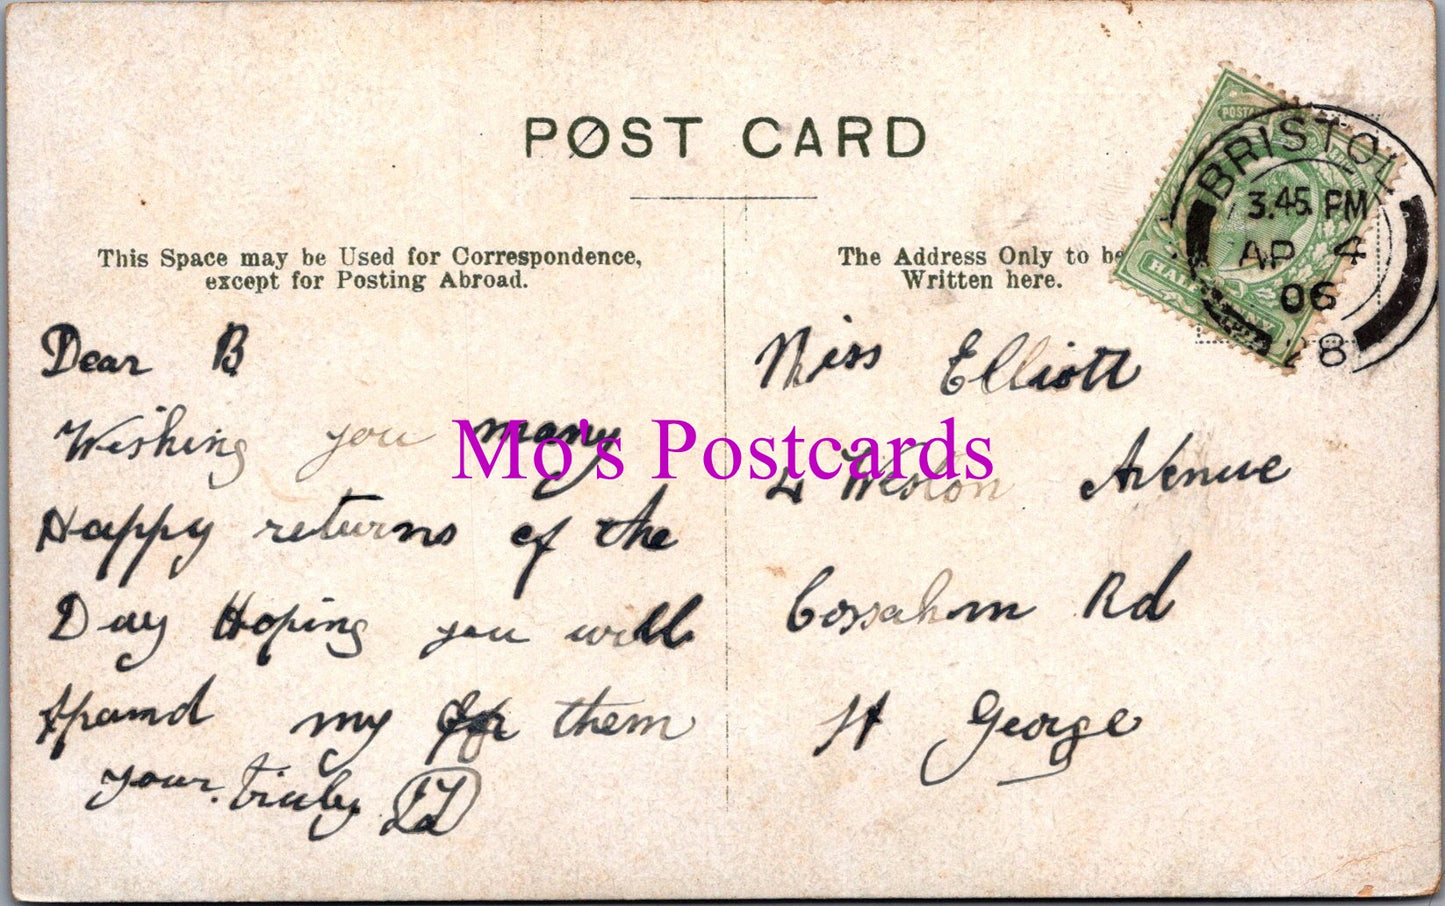 POST CARD
This Space may be Used for Correspondence,
except for Posting Abroad.
The Address Only to be
Written here.
BRISTOL
3.45 PM
AP 4
06
28
HALFPENNY
Dear B
Wishing you many
Happy returns of the
Day Hoping you will
spamd my for them
your truly
Miss Elliott
4 Weston Avenue
Cossahm Rd
St George
Mo's Postcards